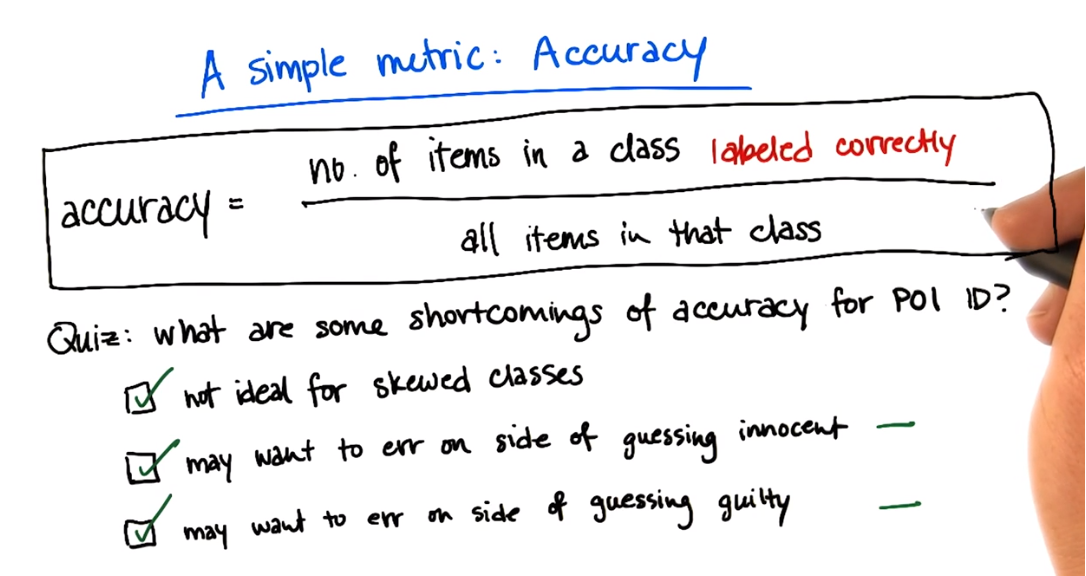 A simple metric: Accuracy
accuracy =
no. of items in a class labeled correctly
all items in that class
Quiz: what are some shortcomings of accuracy for POI ID?
not ideal for skewed classes
may want to err on side of guessing innocent
may want to err on side of guessing guilty